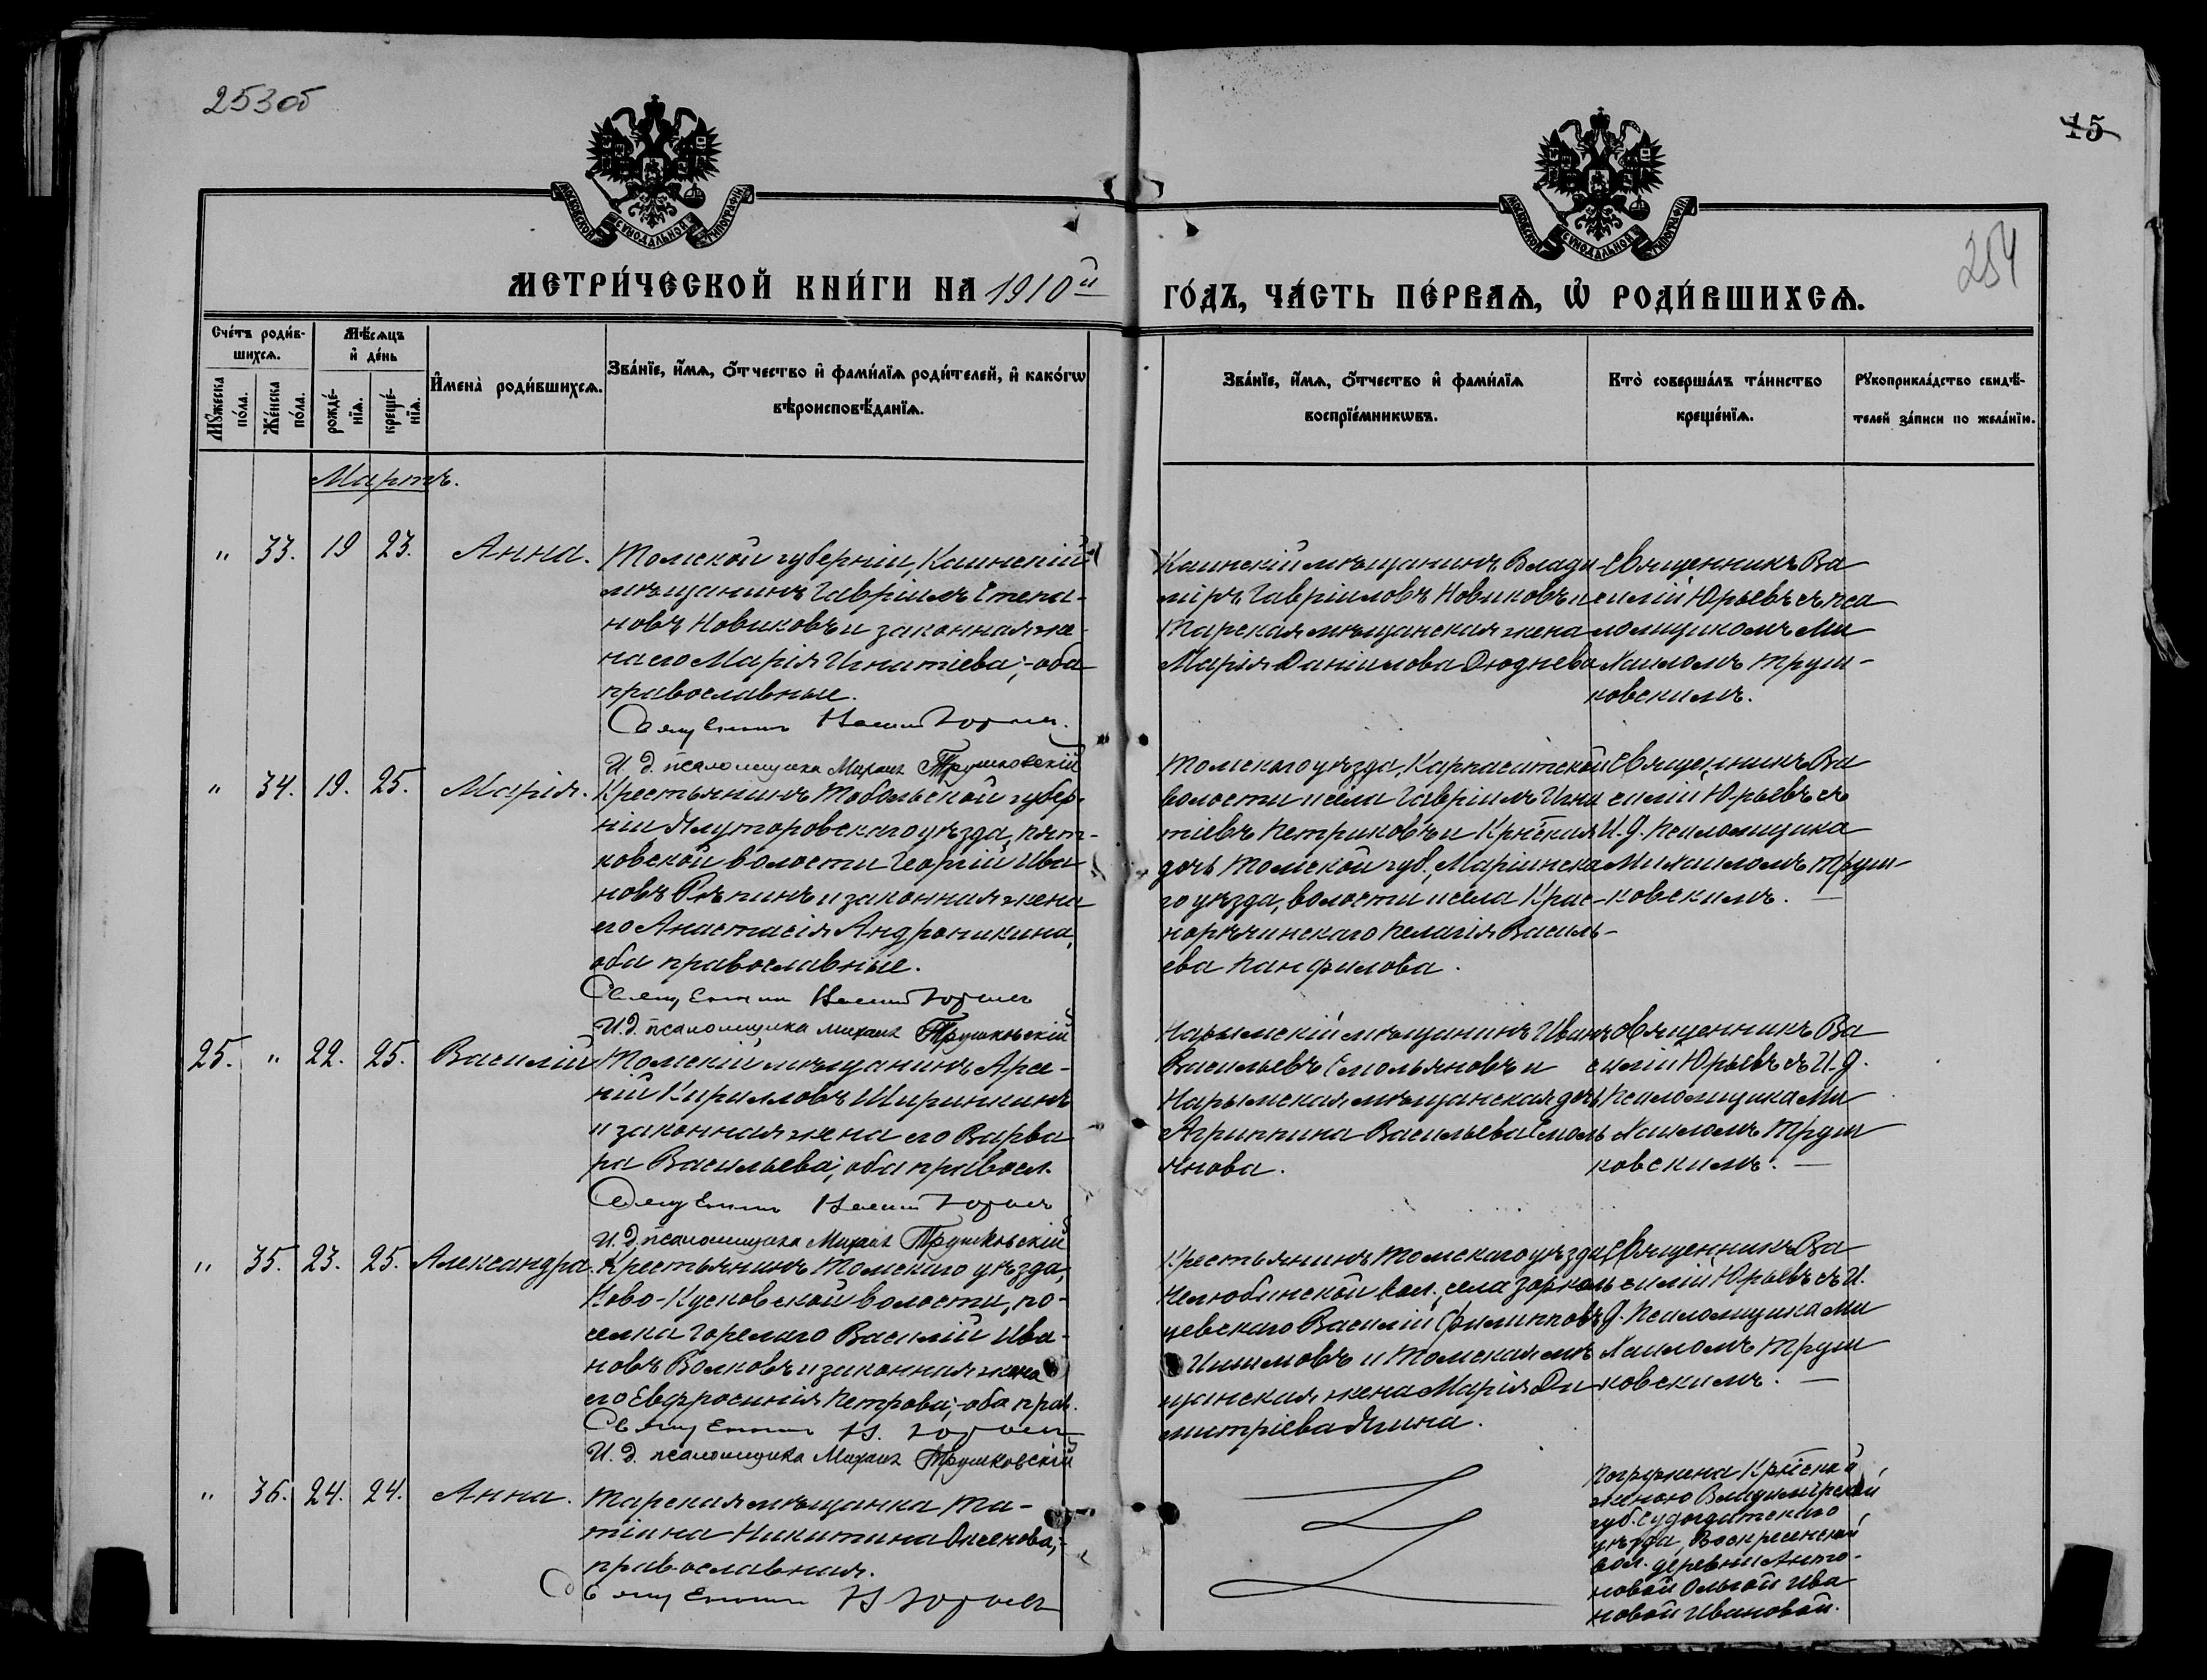 253 об
15
254
МОСКОВСКОЙ СѴНОДАЛЬНОЙ ТИПОГРАФІИ
МОСКОВСКОЙ СѴНОДАЛЬНОЙ ТИПОГРАФІИ
МЕТРИ́ЧЕСКОЙ КНИ́ГИ НА 1910й
ГО́ДЪ, ЧА́СТЬ ПЕ́РВАѦ, Ѡ҆ РОДИ́ВШИХСѦ.
Сче́тъ роди́в-
шихсѧ.
Мꙋ́жеска
по́ла.
Же́нска
по́ла.
Мѣ́сѧцъ
и҆ де́нь
рожде́-
нїѧ.
креще́-
нїѧ.
И҆мена̀ роди́вшихсѧ.
Зва́нїе, и҆́мѧ, ѻ҆́тчество и҆ фами́лїѧ роди́телей, и҆ како́гѡ
вѣроисповѣ́данїѧ.
Зва́нїе, и҆́мѧ, ѻ҆́тчество и҆ фами́лїѧ
воспрїе́мникѡвъ.
Кто̀ соверша́лъ та́инство
креще́нїѧ.
Рꙋкоприкла́дство свидѣ́-
телей за́писи по жела́нїю.
Мартъ.
" 33. 19 23. Анна.
Томской губерніи, Каинскій
мѣщанинъ Гавріилъ Степа-
новъ Новиковъ и законная же-
на его Марія Игнатіева; оба
православные.
Священникъ Василій Юрьевъ
И. д. псаломщика Михаилъ Трушковскій
Каинскій мѣщанинъ Влади-
міръ Гавріиловъ Новиковъ и
Тарская мѣщанская жена
Марія Даніилова Дюднева
Священникъ Ва
силій Юрьевъ съ пса
ломщикомъ Ми
хаиломъ Труш-
ковскимъ.
" 34. 19. 25. Марія.
Крестьянинъ Тобольской губер-
ніи Ялуторовскаго уѣзда, Пят-
ковской волости Георгій Ива
новъ Рѣпинъ и законная жена
его Анастасія Андроникина,
оба православные.
Священникъ Василій Юрьевъ
И. д. псаломщика Михаилъ Трушковскій
Томскаго уѣзда, Каргасатской
волости и села Гавріилъ Игна
тіевъ Петриковъ и Крестьская
дочь Томской губ., Маріинска
го уѣзда, волости и села Крас-
норѣчинскаго Пелагія Василь-
ева Панфилова.
Священникъ Ва
силій Юрьевъ съ
И. д. Псаломщика
Михаиломъ Труш-
ковскимъ. —
25. " 22. 25. Василій
Томскій мѣщанинъ Арсе-
ній Кирилловъ Ширинкинъ
и законная жена его Варва
ра Васильева; оба правосл.
Священникъ Василій Юрьевъ
И. д. псаломщика Михаилъ Трушковскій
Нарымскій мѣщанинъ Иванъ
Васильевъ Смольяновъ и
Нарымская мѣщанская дочь
Агриппина Васильева Смоль
янова.
Священникъ Ва
силій Юрьевъ съ И. д.
Псаломщика Ми
хаиломъ Труш
ковскимъ. —
" 35. 23. 25. Александра.
Крестьянинъ Томскаго уѣзда,
Ново-Кусковской волости, по-
селка Горелаго Василій Ива-
новъ Волковъ и законная жена
его Евфросинія Петрова; оба прав.
Священникъ В. Юрьевъ
И. д. псаломщика Михаилъ Трушковскій
Крестьянинъ Томскаго уѣзда,
Нелюбинской вол., села Зоркаль
цевскаго Василій Филипповъ
Ишимовъ и Томская мѣ
щанская жена Марія Ди
митріева Ягина.
Священникъ Ва
силій Юрьевъ съ И.
д. Псаломщика Ми
хаиломъ Труш
ковскимъ. —
" 36. 24. 24. Анна.
Тарская мѣщанка Та-
тіана Никитина Аксенова;
православная.
Священникъ В Юрьевъ
Погружена Крестьской
женою Владимірской
губ. Судогдитскаго
уѣзда, Воскресенской
вол. деревни Анто-
новой Ольгой Ива
новой Ивановой.